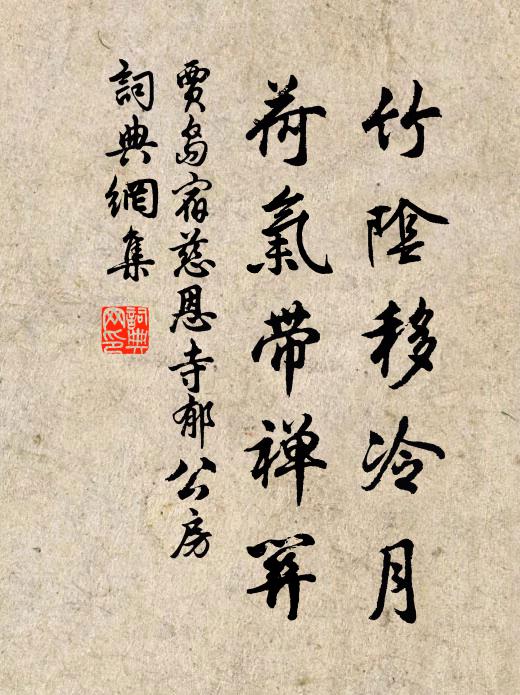 竹陰移冷月
荷氣帶禪關
賈島宿慈恩寺郁公房
詞典網集
詞典
网印